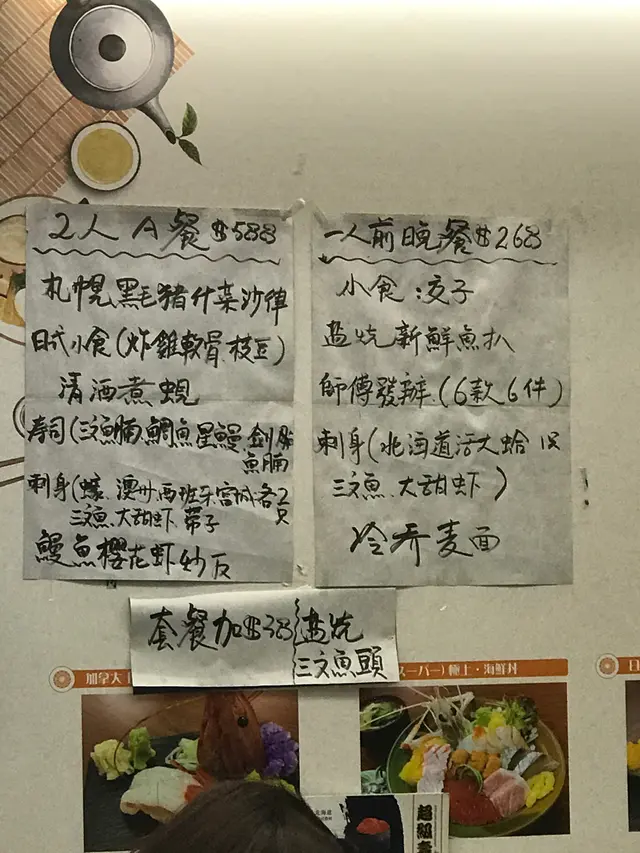 2人A餐$588
札幌黑毛猪什菜沙律
日式小食(炸雞軟骨、枝豆)
清酒煮蜆
寿司(三文魚腩、鯛魚、星鰻、劍
魚腩
刺身(蠔、澳州、西班牙、宮城各2只
三文魚、大甜虾、帶子
鰻魚櫻花虾炒反
一人前晚餐$268
小食:交子
盐烧新鮮魚扒
師傅發辦(6款6件)
刺身(北海道活大蛤1只
三文魚、大甜虾)
冷乔麦面
套餐加$38
盐烧
三文魚頭
加拿大
スーパー)極上・海鮮丼
北海道
超級